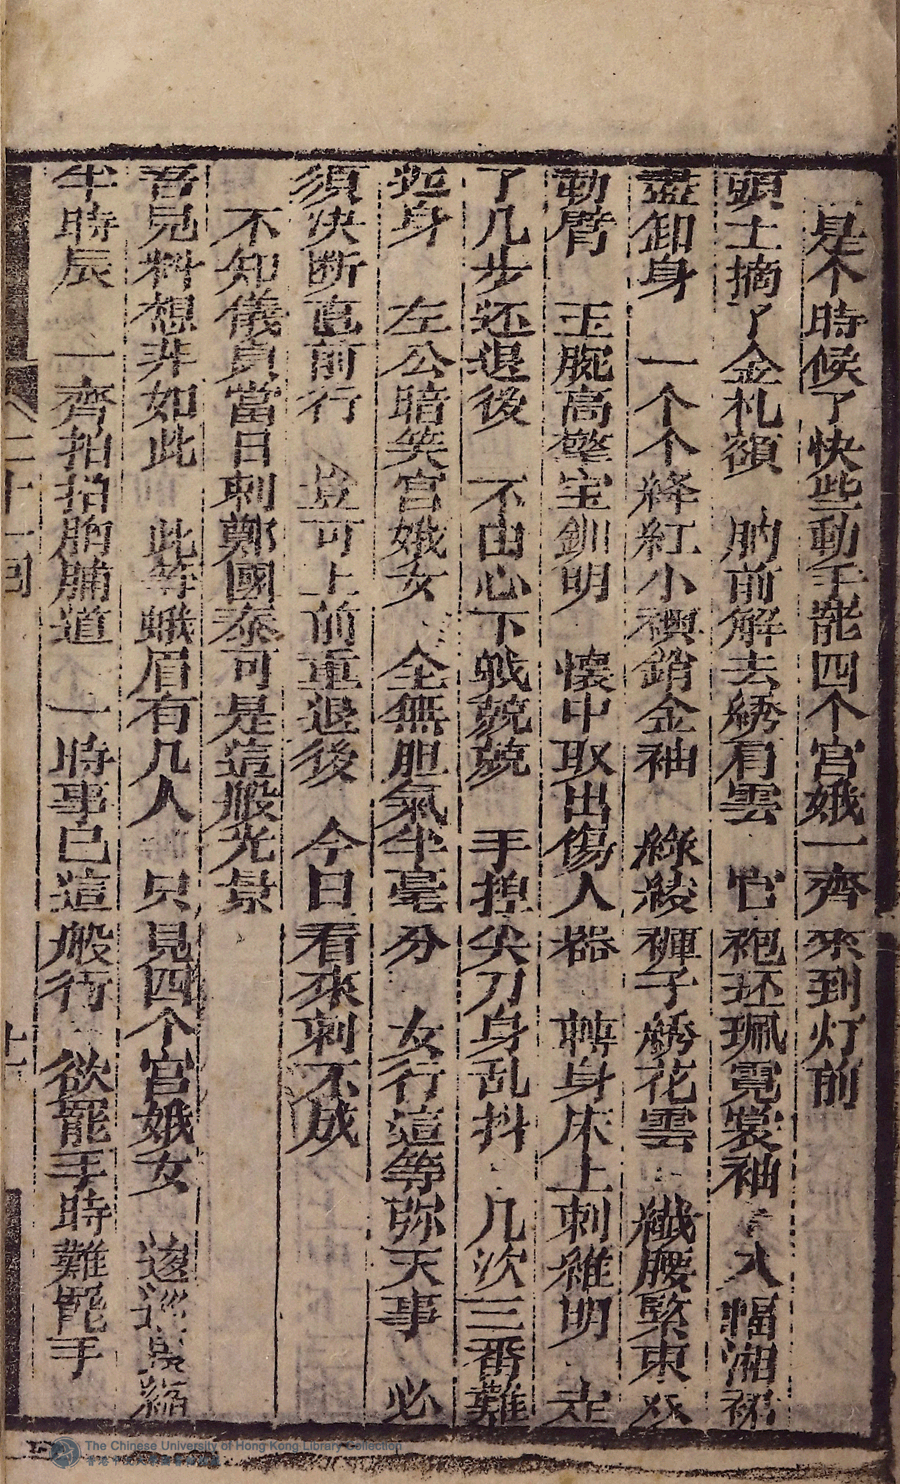 是个時候了快些動手罷四个宮娥一齊來到灯前
頭上摘了金札額　胸前解去綉肩雲　宮袍环珮霓裳袖　八幅湘裙
盡卸身　一个个絳紅小襖銷金袖　綠綾褲子綉花雲　纖腰緊束双
勒臂　玉腕高擎宝釧明　懷中取出傷人器　轉身床上刺雑明　走
了几步还退後　不由心下戦兢兢　手揑尖刀身乱抖　几次三番難
近身　左公暗笑宮娥女　全無胆氣半毫分　女行這等弥天事　必
須决断直前行　豈可上前重退後　今日看來刺不成
不知儀貞當日刺鄭國泰可是這般光景
吾見料想非如此　此等蛾眉有几人　只見四个宮娥女　逡巡縮
半時辰　一齊拍拍胸脯道　一時事已這般行　欲罷手時難罷手
二十一囬
十一
The Chinese University of Hong Kong Library Collection